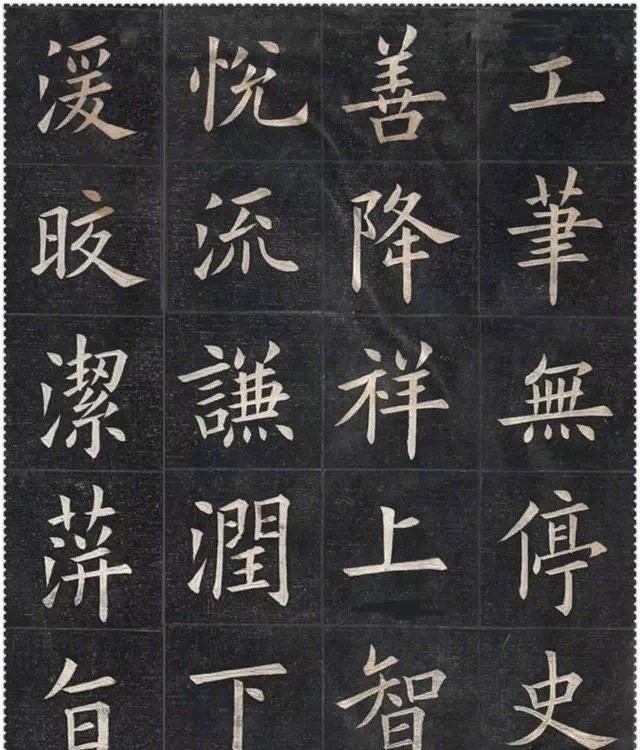 工筆無停史
善降祥上智
悅流謙潤下
湲晈潔蓱旨